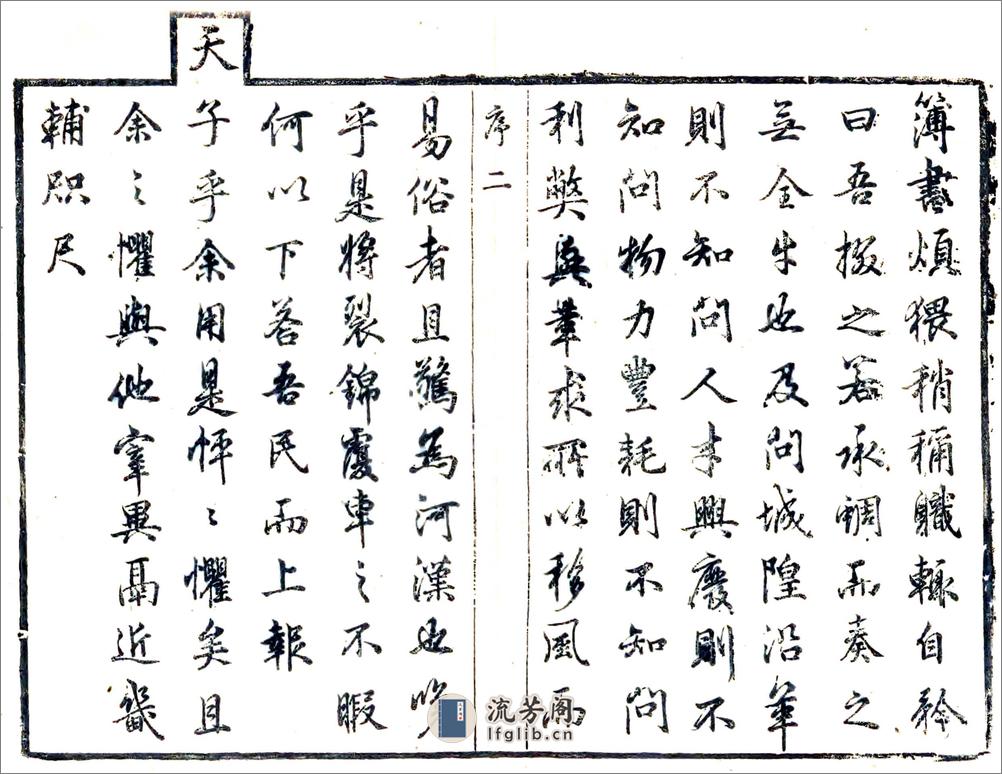 簿書煩猥稍稱職輙自矜
曰吾掇之若承蜩而奏之
無全牛也及問城隍沿革
則不知問人才興廢則不
知問物力豐耗則不知問
利獘興革求所以移風而
序二
易俗者且驚為河漢也嗟
乎是將裂錦覆車之不暇
何以下答吾民而上報
天
子乎余用是怦〻懼矣且
余之懼與他宰異鬲近畿
輔咫尺
流芳阁
lfglib.cn